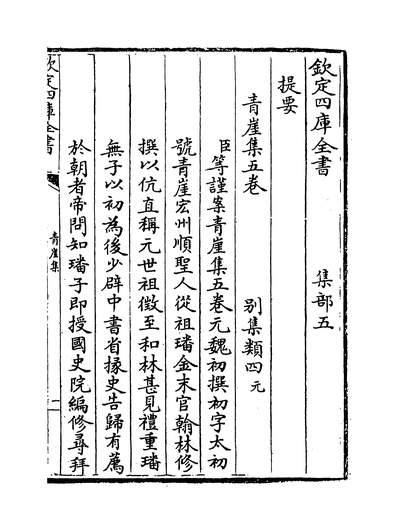 欽定四庫全書　　　集部五
提要
青崖集五卷　　　别集類四元
臣等謹案青崖集五卷元魏初撰初字太初
號青崖宏州順聖人從祖璠金末官翰林修
撰以伉直稱元世祖徴至和林甚見禮重璠
無子以初為後少辟中書省掾史告歸有薦
於朝者帝問知璠子即授國史院編修尋拜
欽定四庫全書
青崖集
一